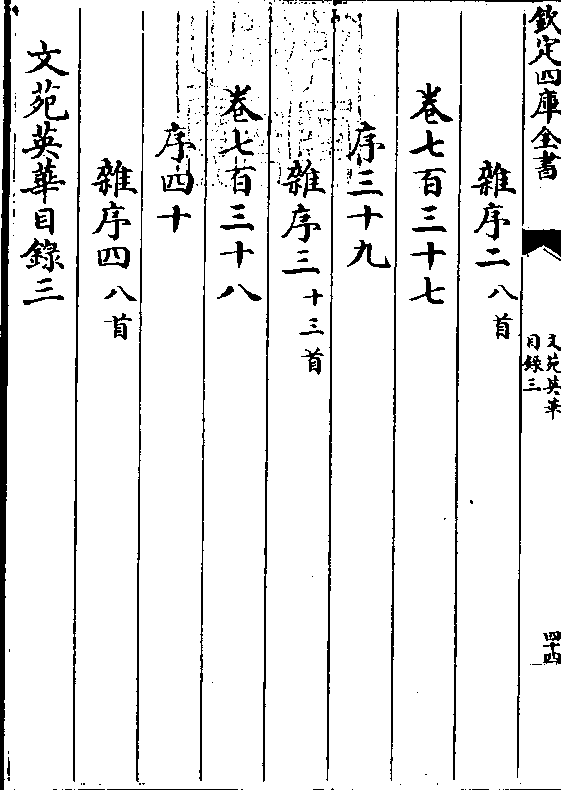 欽定四庫全書
文苑英華
目錄三
四十四
雜序二八首
卷七百三十七
序三十九
雜序三十三首
卷七百三十八
序四十
雜序四八首
文苑英華目錄三